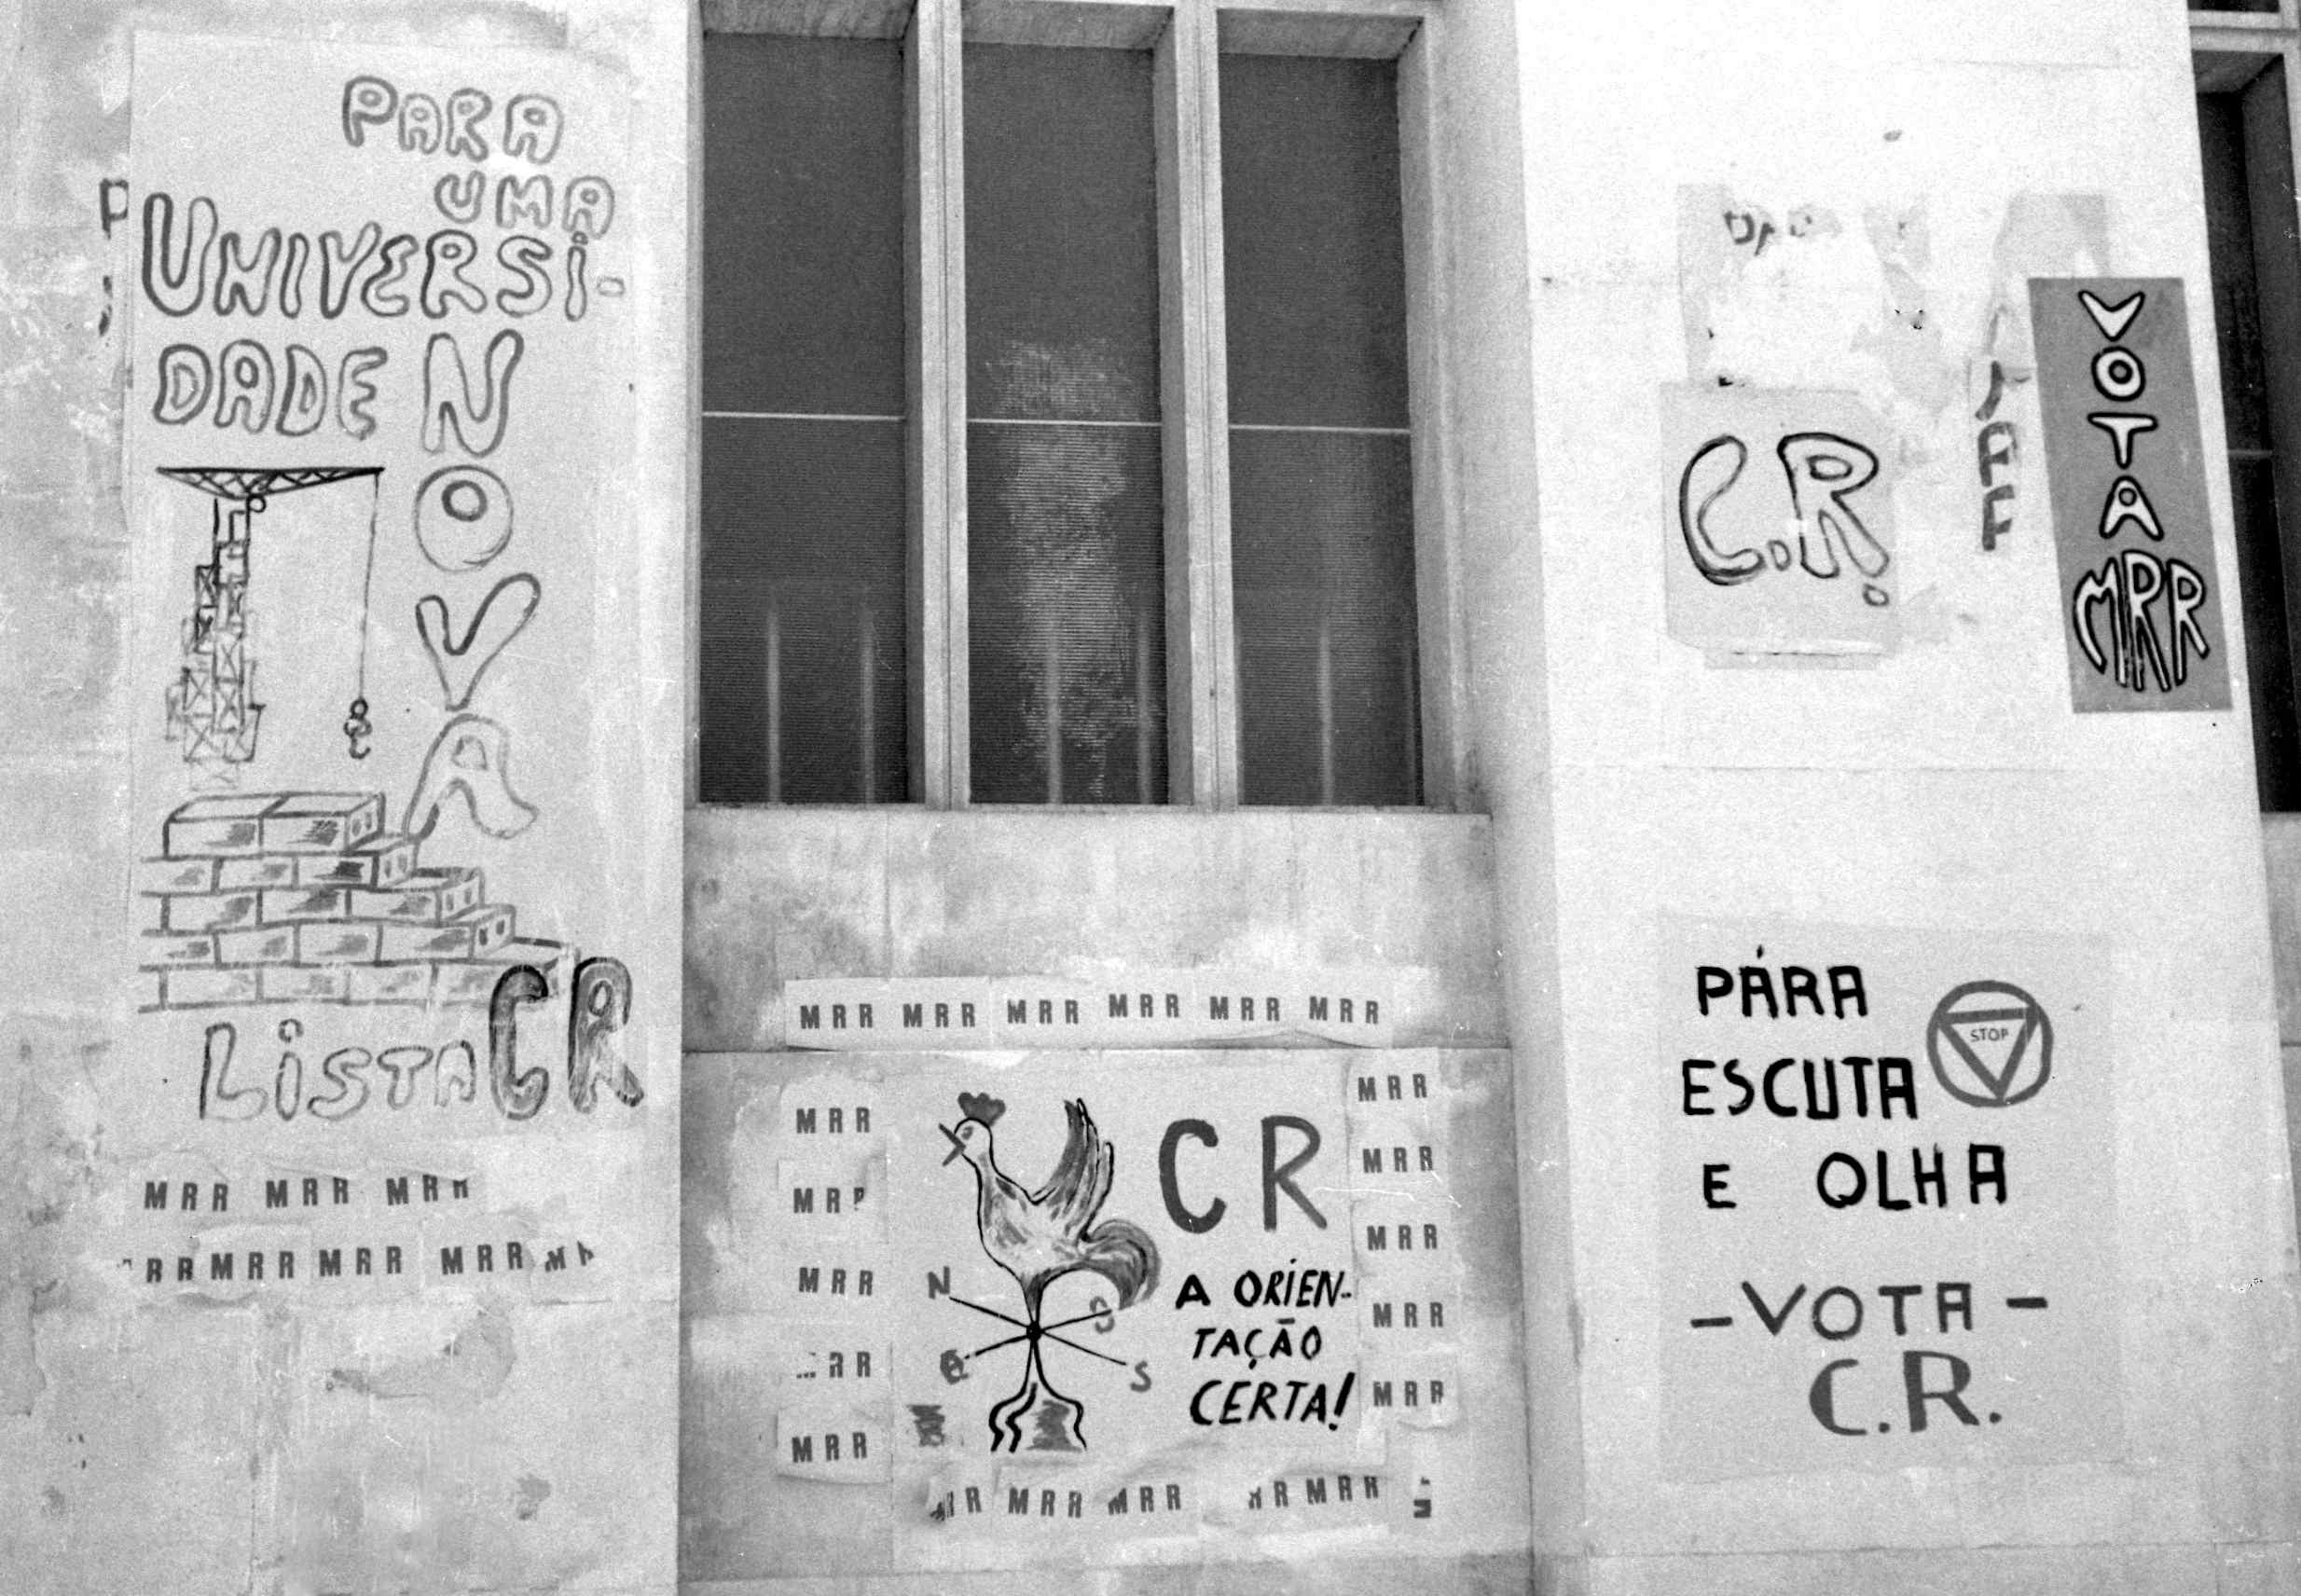 PARA
UMA
UNIVERSI-
DADE NOVA
LISTA CR
MRR MRR MRR
RR MRR MRR MRR
MRR MRR MRR MRR MRR MRR
MRR
MRR
MRR
RR
MRR
CR
A ORIEN-
TAÇÃO
CERTA!
N
O
E
S
MRR
MRR
MRR
MRR
MRR
MRR MRR RR MRR
C.R.
VOTA
MRR
PÁRA
ESCUTA
E OLHA
STOP
-VOTA-
C.R.